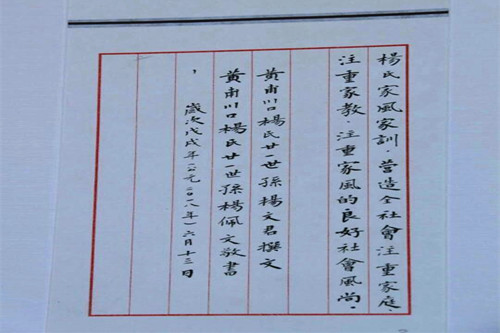 楊氏家風家訓．營造全社會注重家庭、
注重家教．注重家風的良好社會風尚．
黃甫川口楊氏廿一世孫楊文君撰文
黃甫川口楊氏廿一世孫楊佩文敬書
歲次戊戌年（公元二〇一八年）六月十三日